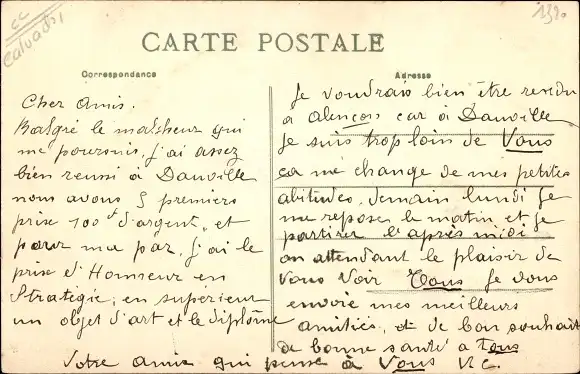 CC
Calvados
1320
CARTE POSTALE
Correspondance
Adresse
Cher Amis.
Malgré le malheur qui
me poursuis, j'ai assez
bien reussi à Dauville
nous avons 5 premiers
prise 100f d'argent, et
pour ma par, j'ai le
prise d'Honneur en
Stratégie, en supérieur
un objet d'art et le diplôme
Je voudrais bien être rendu
à alençois car à Dauville
Je suis trop loin de Vous
ca me change de mes petites
abitudes, demain lundi Je
me repose le matin et Je
partirer l'après midi
en attendant le plaisir de
Vous Voir Tous Je vous
envoie mes meilleurs
amitiés, et de bon souhait
de bonne santé à Tous
Votre amie qui pense à Vous